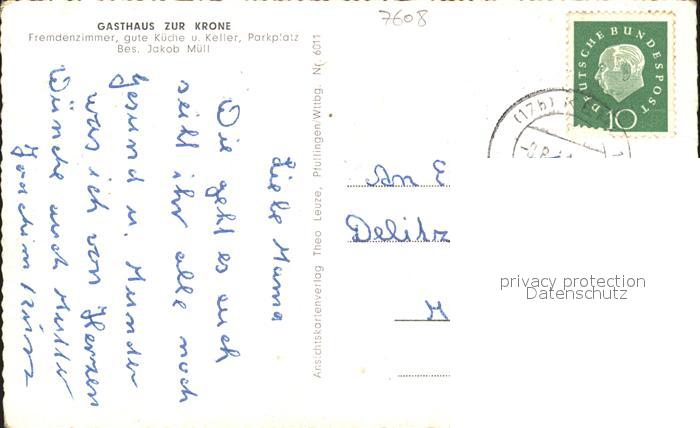 GASTHAUS ZUR KRONE
Fremdenzimmer, gute Küche u. Keller, Parkplatz
Bes. Jakob Müll
7608
Liebe Mama
Wie geht es euch
seit ihr alle noch
Gesund u. Munder
was ich von Herzen
Wünche auch Mutter
Joachim
Ansichtskartenverlag Theo Leuze, Pfullingen/Wttbg. Nr. 6011
An E
Delitz
DEUTSCHE BUNDESPOST
10
(17b)
privacy protection
Datenschutz